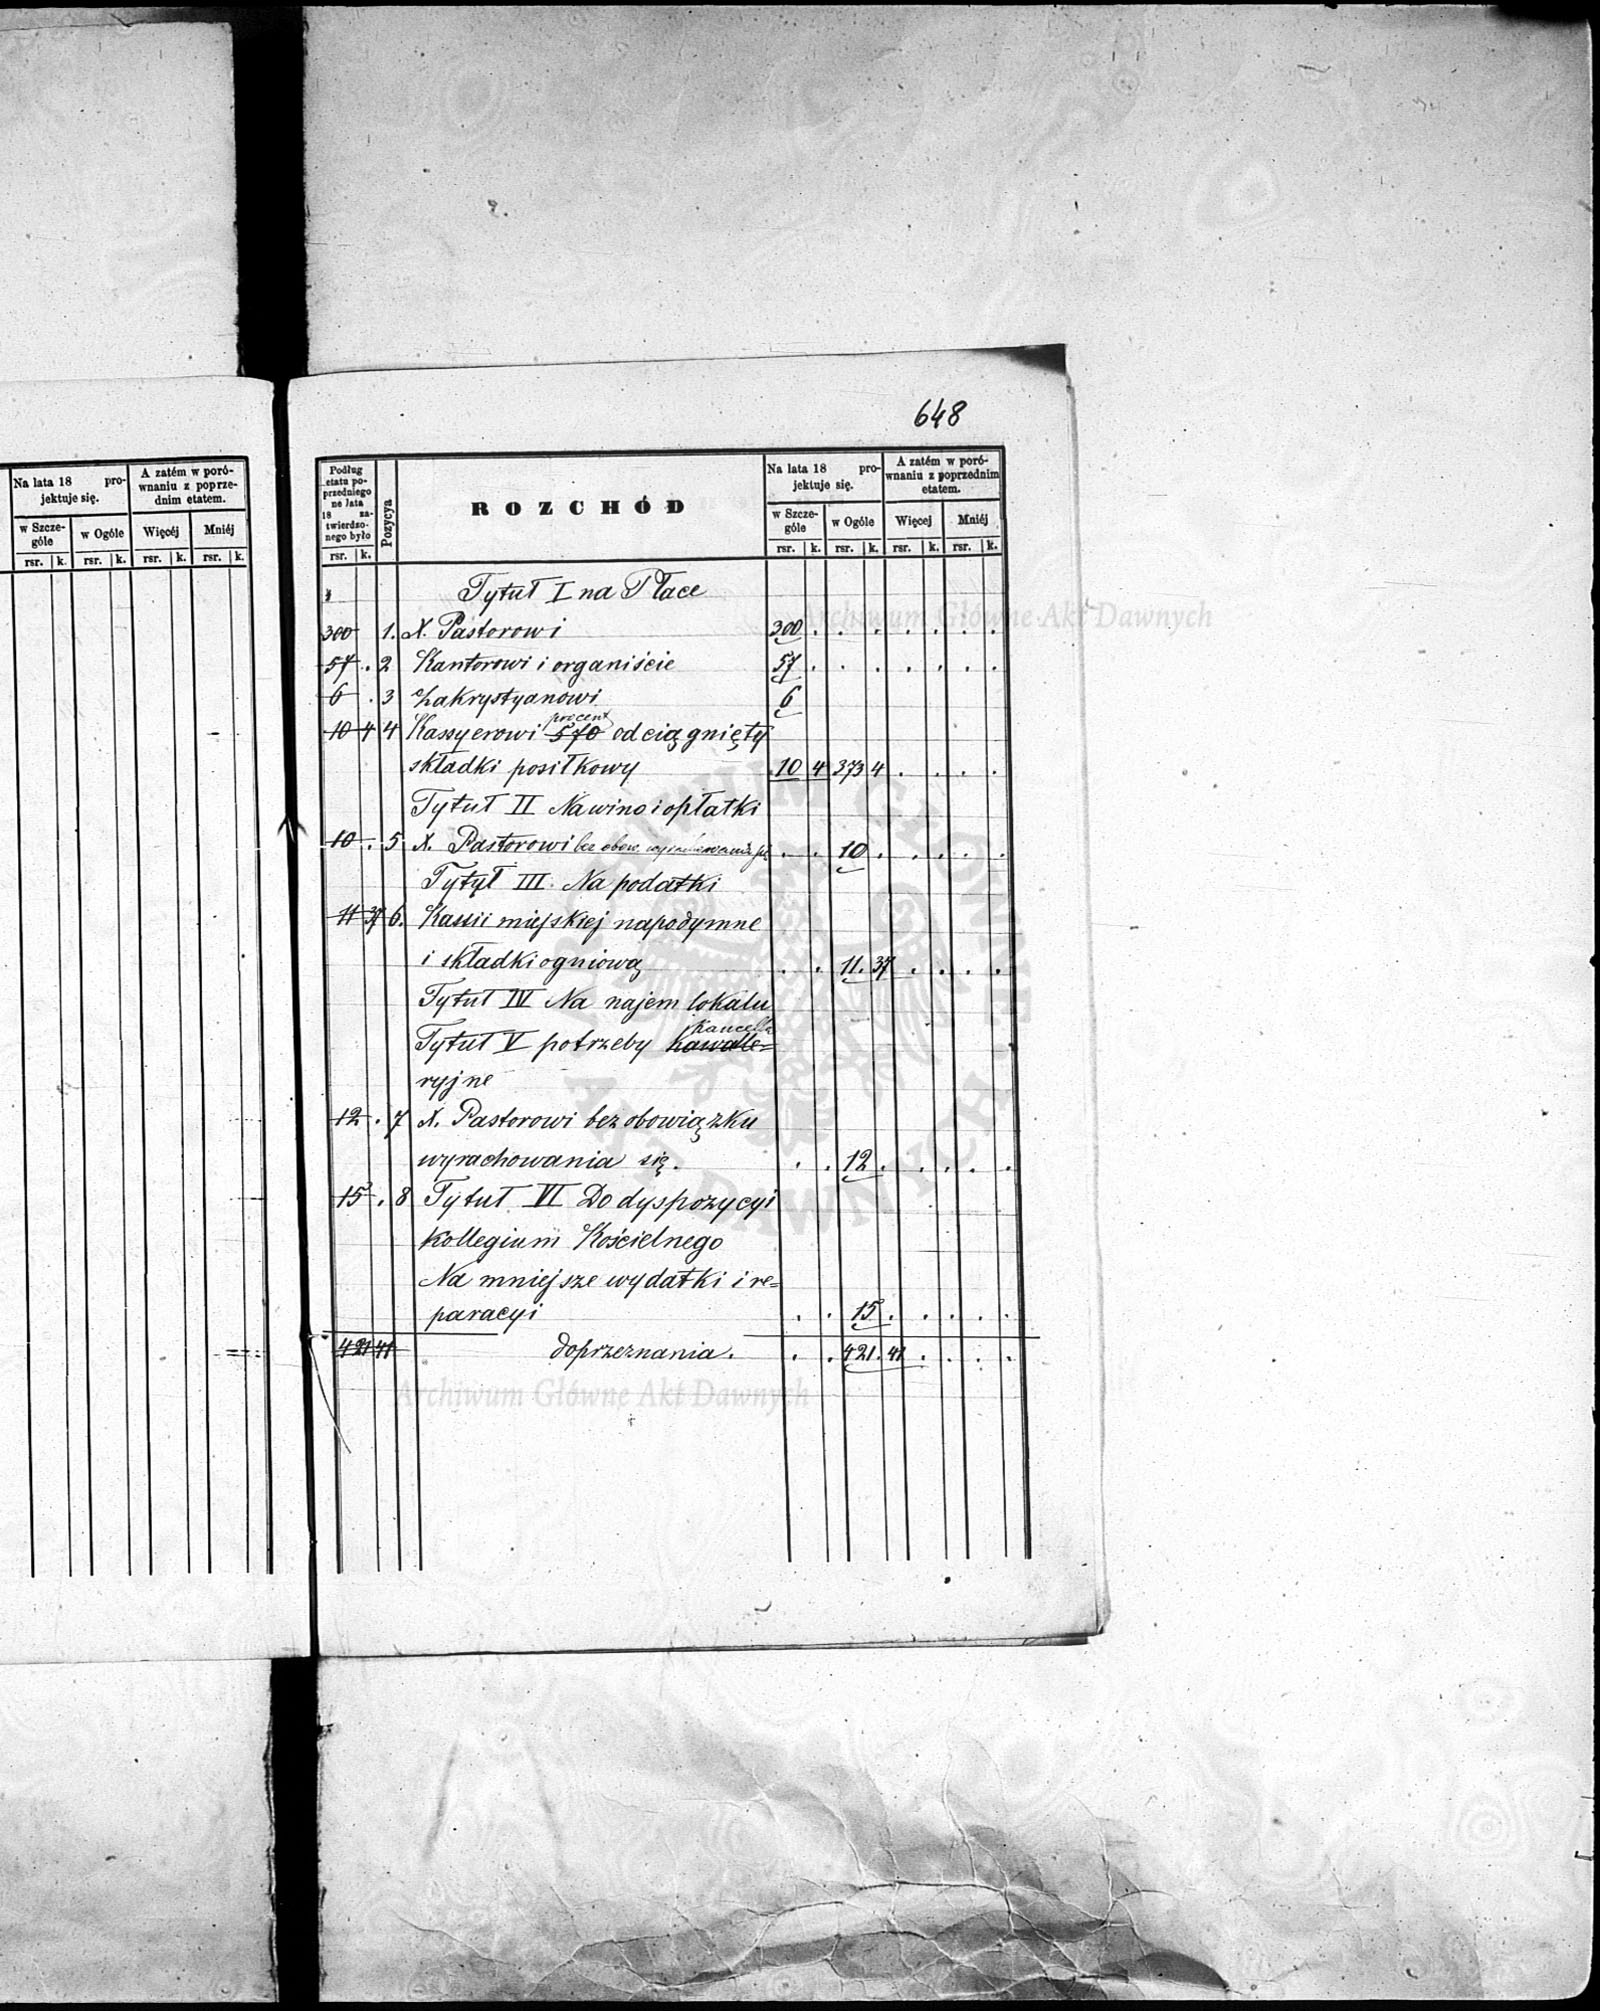 648
Na lata 18 pro-
jektuje się.
A zatém w poró-
wnaniu z poprze-
dnim etatem.
w Szcze-
góle
w Ogóle
Więcéj
Mniéj
rsr. k. rsr. k. rsr. k. rsr. k.
Podług
etatu po-
przedniego
na lata
18 za-
twierdzo-
nego było
Pozycya
ROZCHÓD
Na lata 18 pro-
jektuje się.
A zatém w poró-
wnaniu z poprzednim
etatem.
w Szcze-
góle
w Ogóle
Więcej
Mniéj
rsr. k. rsr. k. rsr. k. rsr. k. rsr. k.
Tytuł I na Płace
300 1. X. Pastorowi 300 . . . . . . . .
57 . 2 Kantorowi i organiście 57 . . . . . . .
6 . 3 Zakrystyanowi 6
procent
10 4 4 Kassyerowi 570 odciągnięty
składki posiłkowy 10 4 373 4 . . . .
Tytuł II Na wino i opłatki
10 . 5 X. Pastorowi bez obow. wyrachowania się . . 10 . . . . .
Tytył III. Na podatki
11 37 6. Kassii miejskiej na podymne
i składki ogniową . . 11. 37 . . . .
Tytuł IV Na najem lokalu
Kancella
Tytuł V potrzeby kawale=
ryjne
12 . 7 X. Pastorowi bez obowiązku
wyrachowania się. . . 12 . . . . .
15 . 8 Tytuł VI Do dyspozycyi
Kollegium Kościelnego
Na mniejsze wydatki i re=
paracyi . . 15 . . . . .
421 41 do przeznania. . . 421. 41 . . . .
Archiwum Główne Akt Dawnych
Archiwum Główne Akt Dawnych
ARCHIWUM GŁÓWNE AKT DAWNYCH